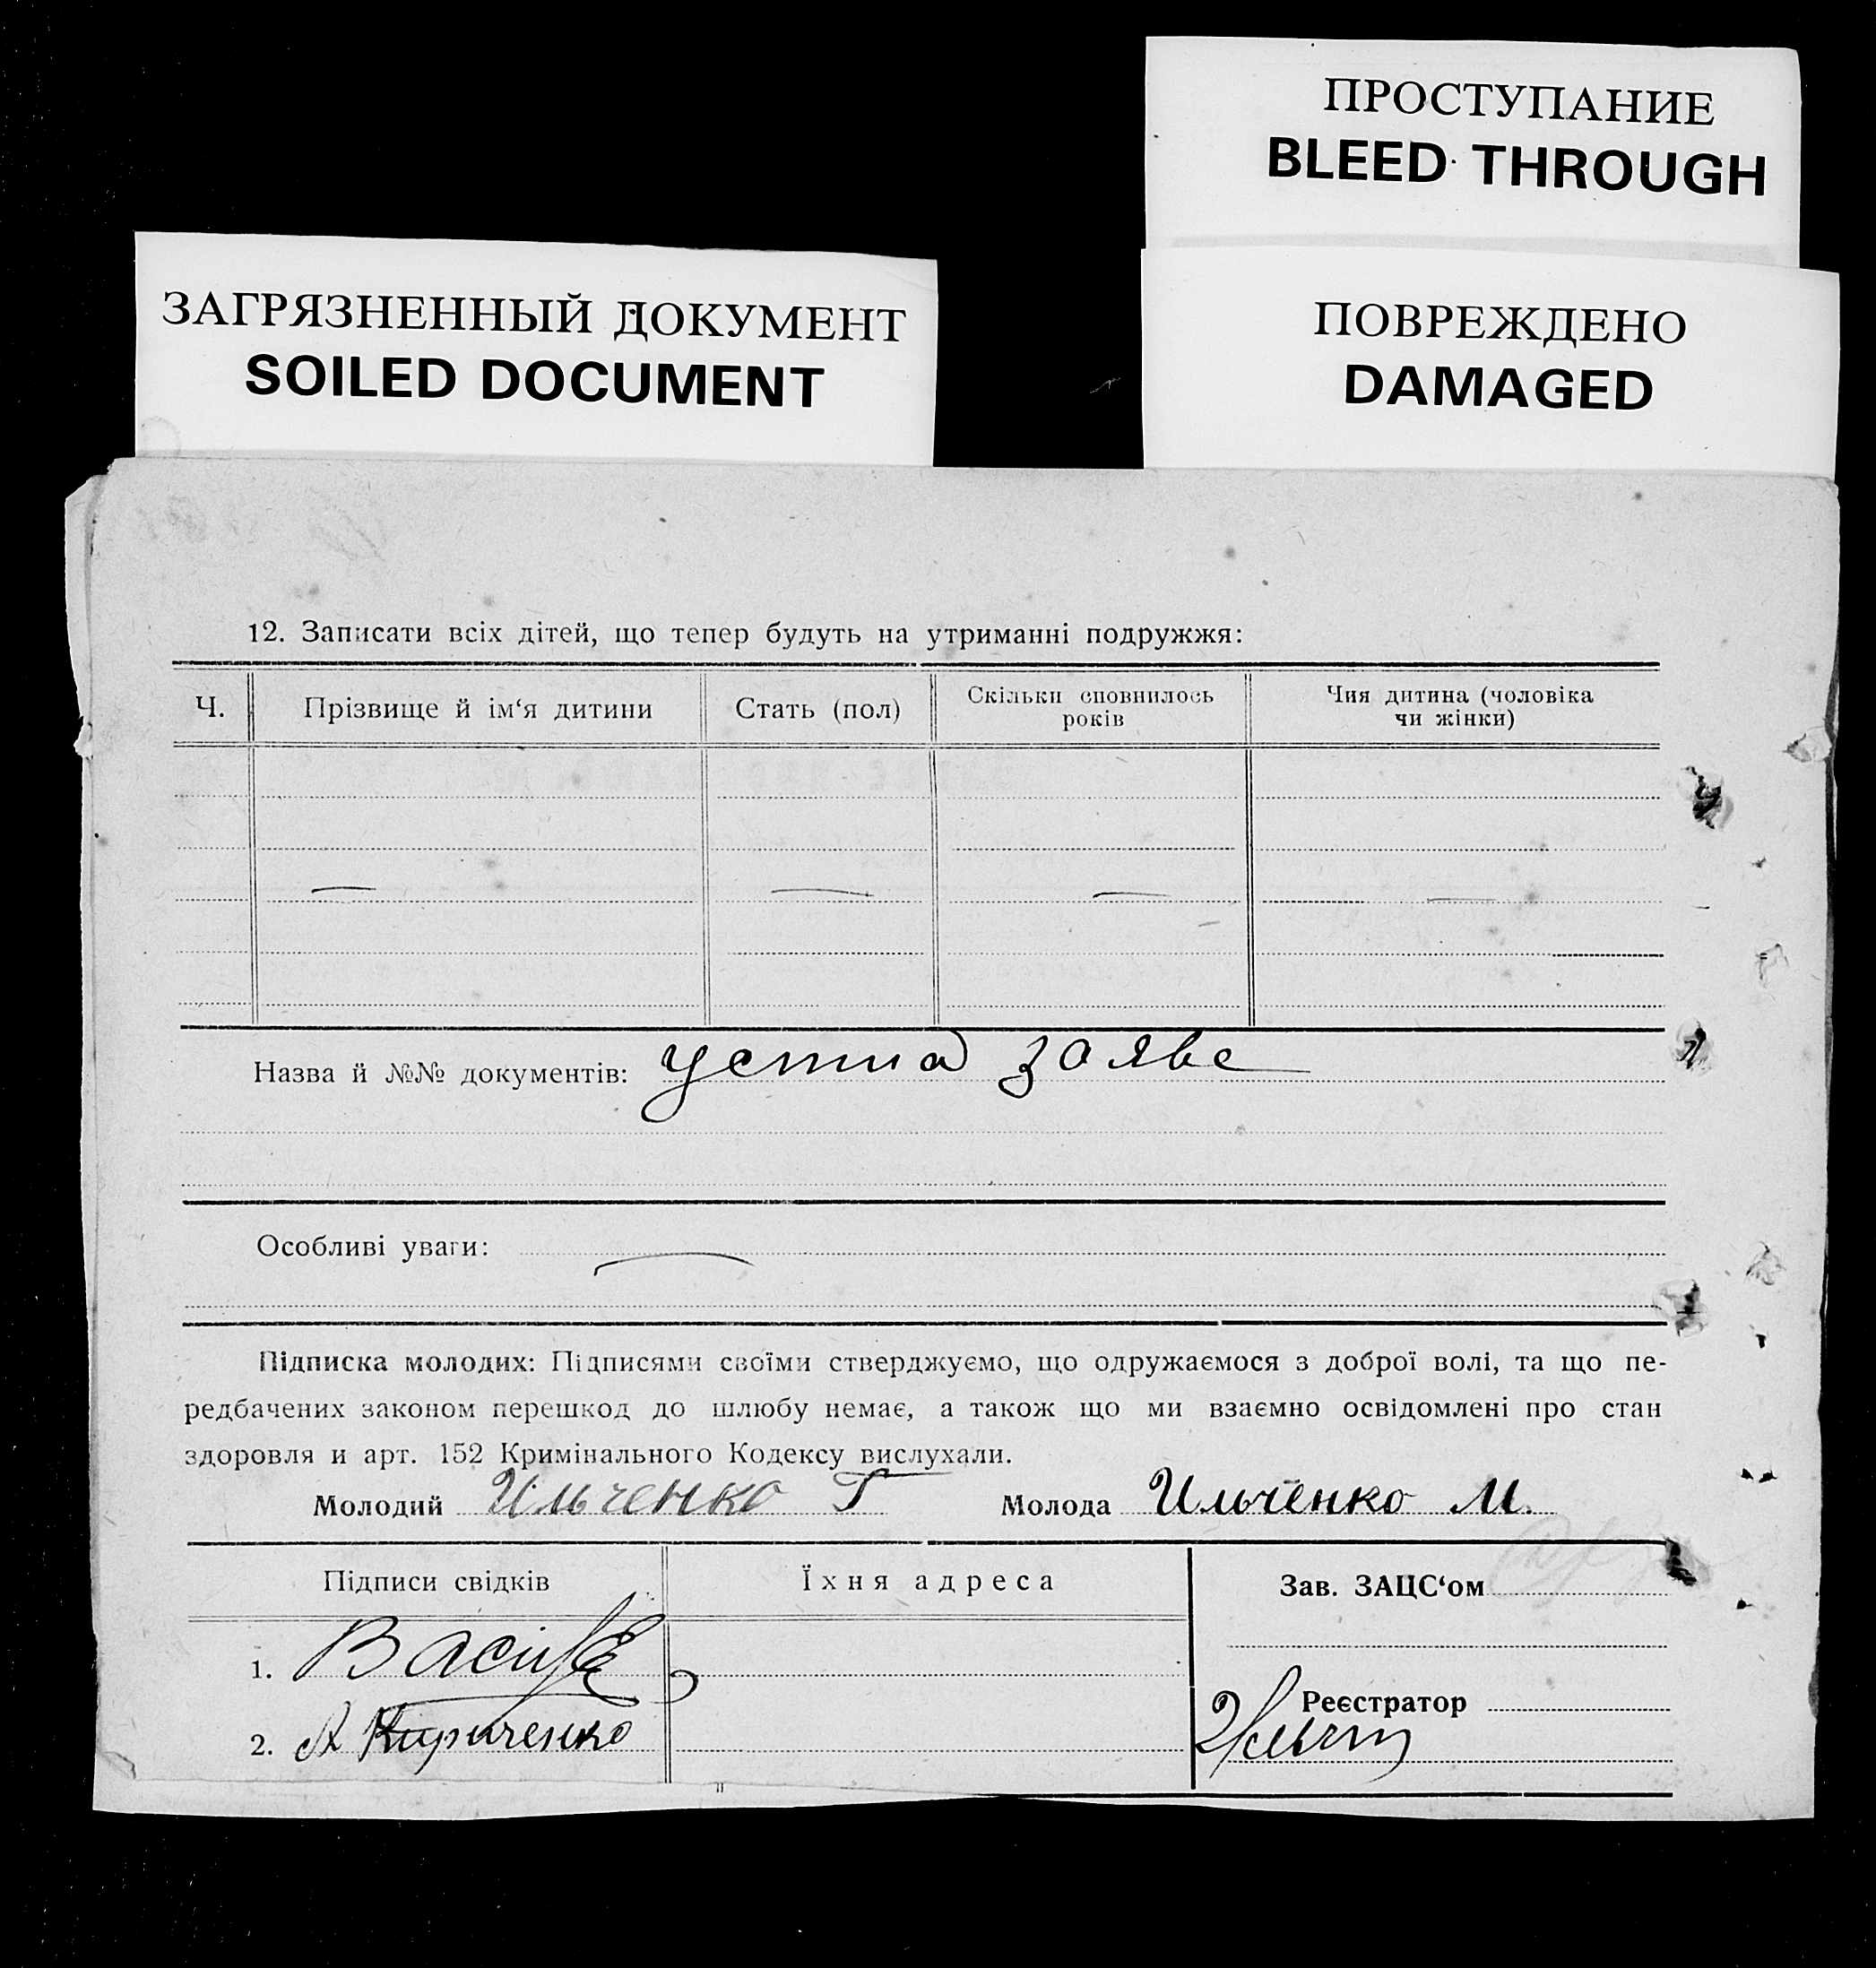 ПРОСТУПАНИЕ
BLEED THROUGH
ЗАГРЯЗНЕННЫЙ ДОКУМЕНТ
SOILED DOCUMENT
ПОВРЕЖДЕНО
DAMAGED
12. Записати всіх дітей, що тепер будуть на утриманні подружжя:
Ч. Прізвище й ім‘я дитини Стать (пол) Скільки сповнилось років Чия дитина (чоловіка чи жінки)
— — — —
Назва й №№ документів: устна заява
Особливі уваги: —
Підписка молодих: Підписями своїми стверджуємо, що одружаємося з доброї волі, та що пе-
редбачених законом перешкод до шлюбу немає, а також що ми взаємно освідомлені про стан
здоровля и арт. 152 Кримінального Кодексу вислухали.
Молодий Ильченко Г Молода Ильченко М.
Підписи свідків Їхня адреса Зав. ЗАЦС‘ом
1.
Реєстратор
2. А Кириченко